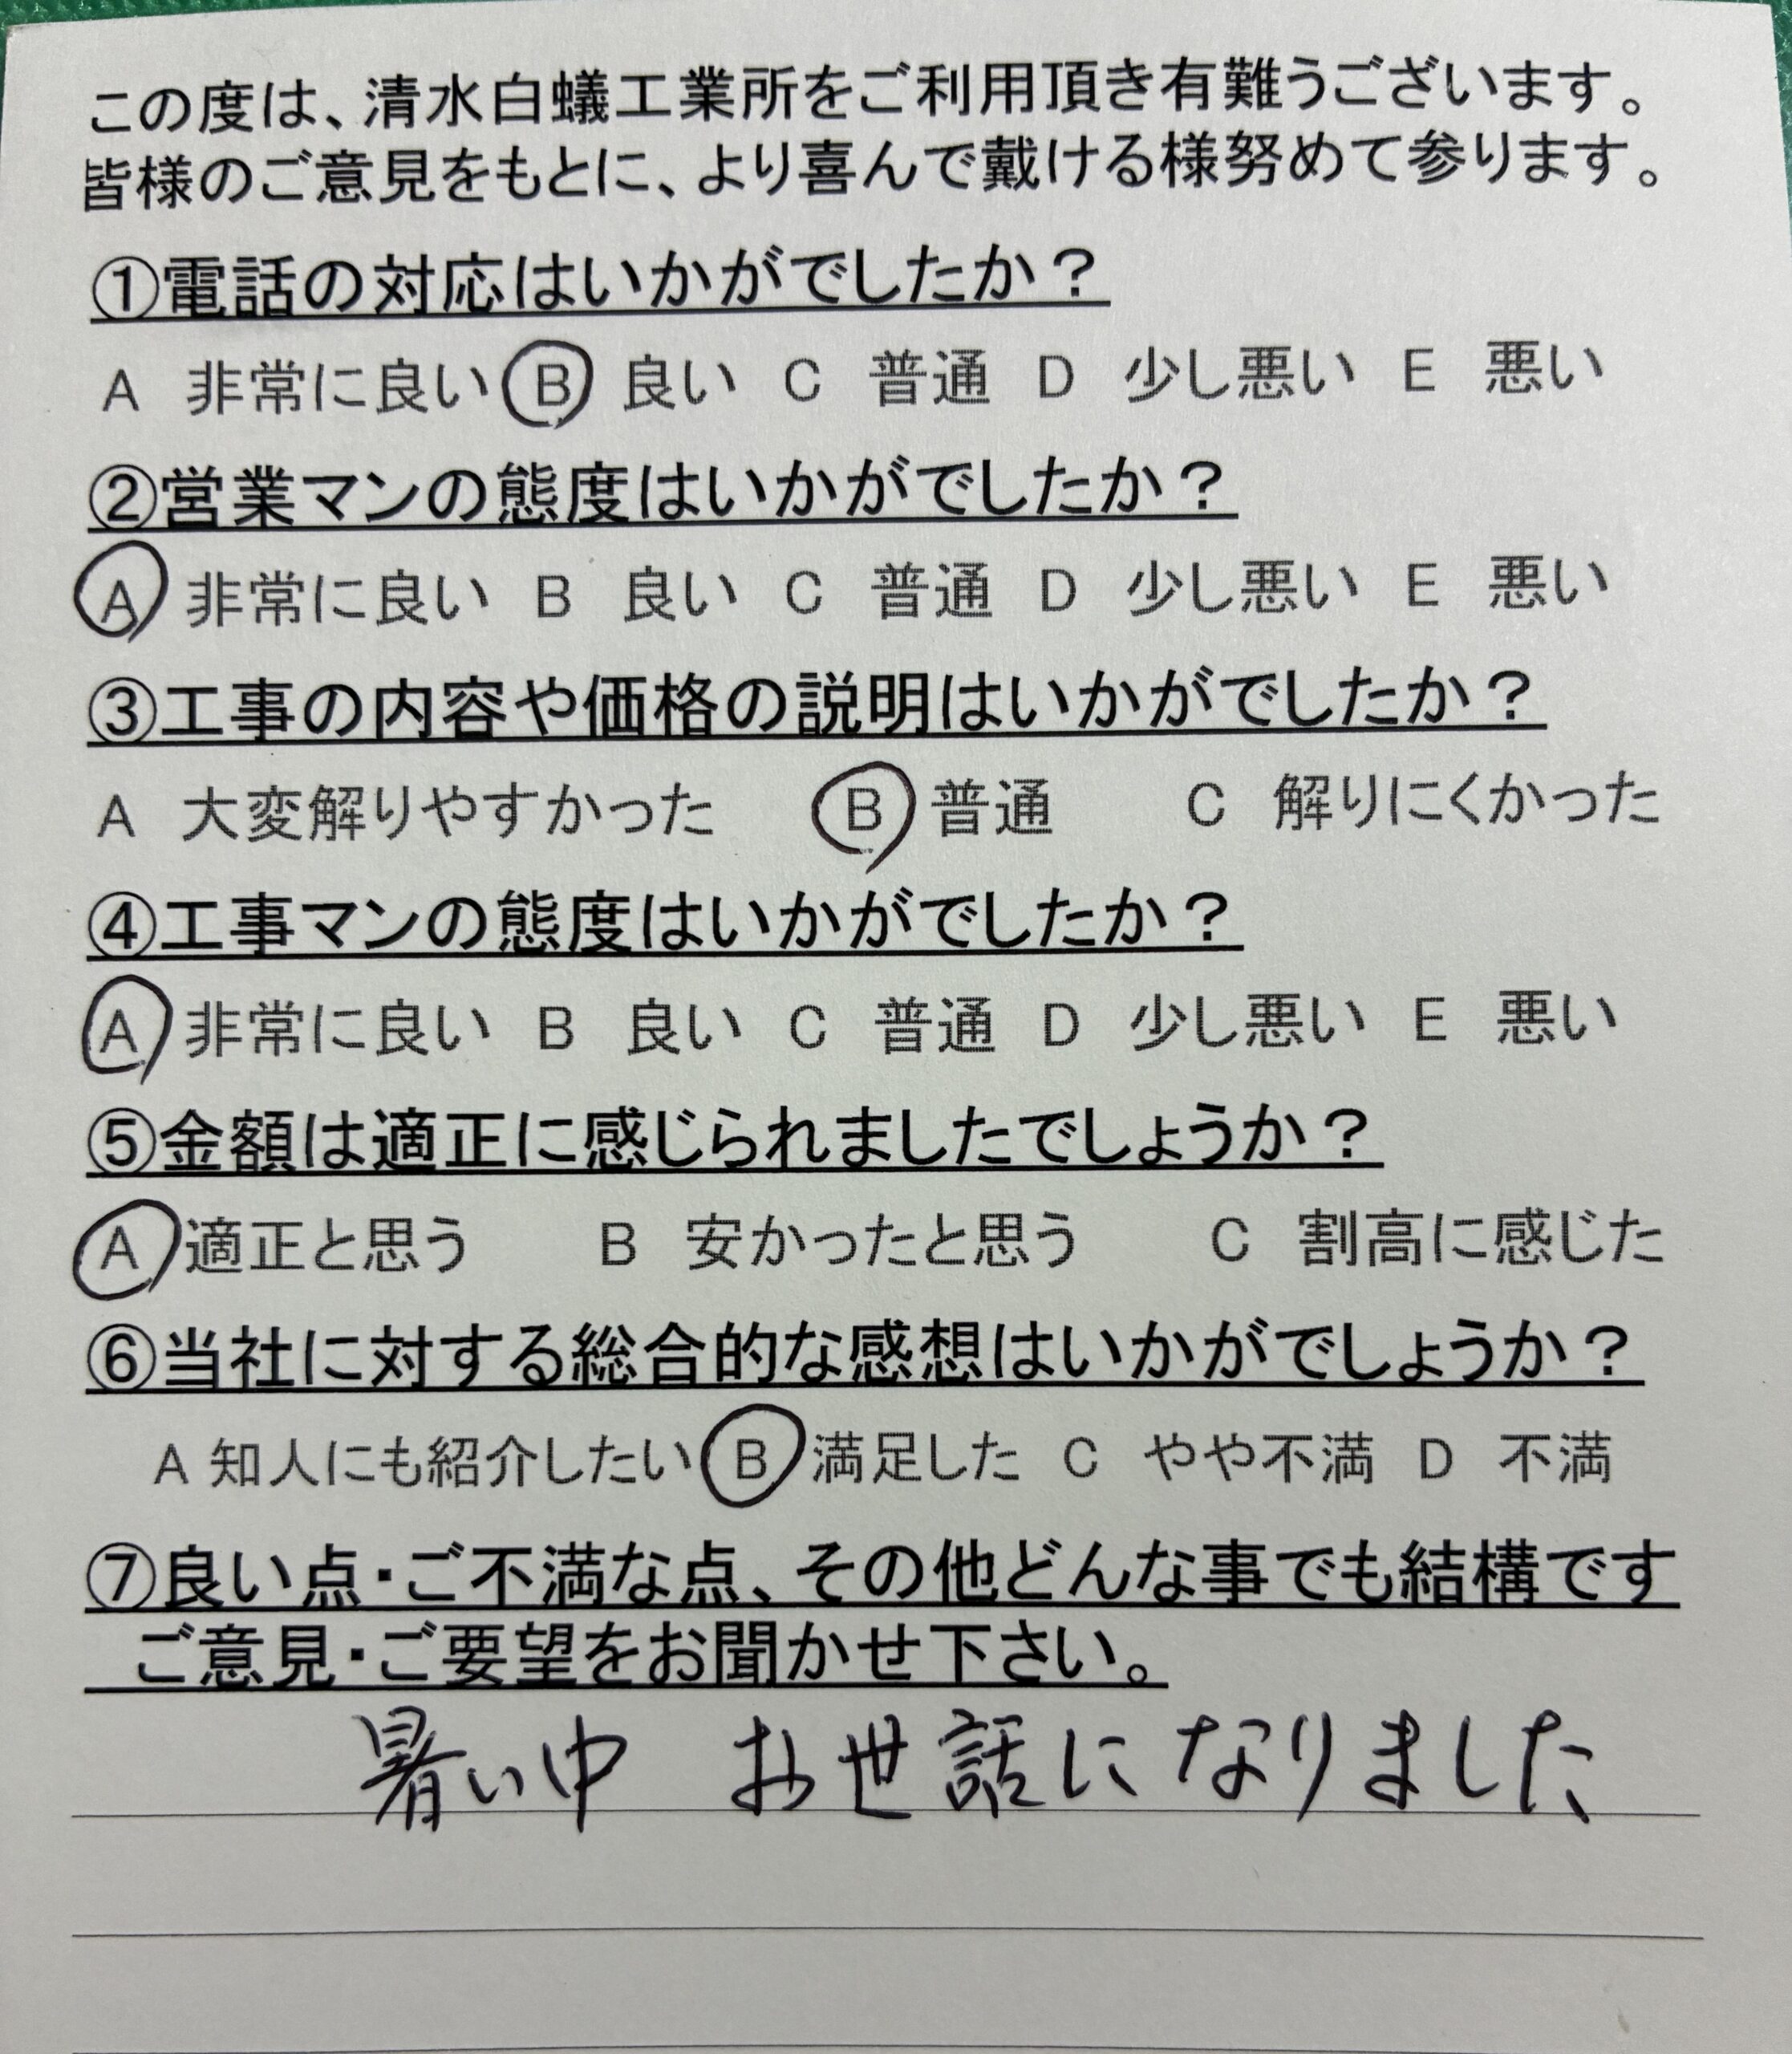 この度は、清水白蟻工業所をご利用頂き有難うございます。
皆様のご意見をもとに、より喜んで戴ける様努めて参ります。
①電話の対応はいかがでしたか？
A 非常に良い B 良い C 普通 D 少し悪い E 悪い
②営業マンの態度はいかがでしたか？
A 非常に良い B 良い C 普通 D 少し悪い E 悪い
③工事の内容や価格の説明はいかがでしたか？
A 大変解りやすかった B 普通 C 解りにくかった
④工事マンの態度はいかがでしたか？
A 非常に良い B 良い C 普通 D 少し悪い E 悪い
⑤金額は適正に感じられましたでしょうか？
A 適正と思う B 安かったと思う C 割高に感じた
⑥当社に対する総合的な感想はいかがでしょうか？
A 知人にも紹介したい B 満足した C やや不満 D 不満
⑦良い点・ご不満な点、その他どんな事でも結構です
ご意見・ご要望をお聞かせ下さい。
暑い中 お世話になりました